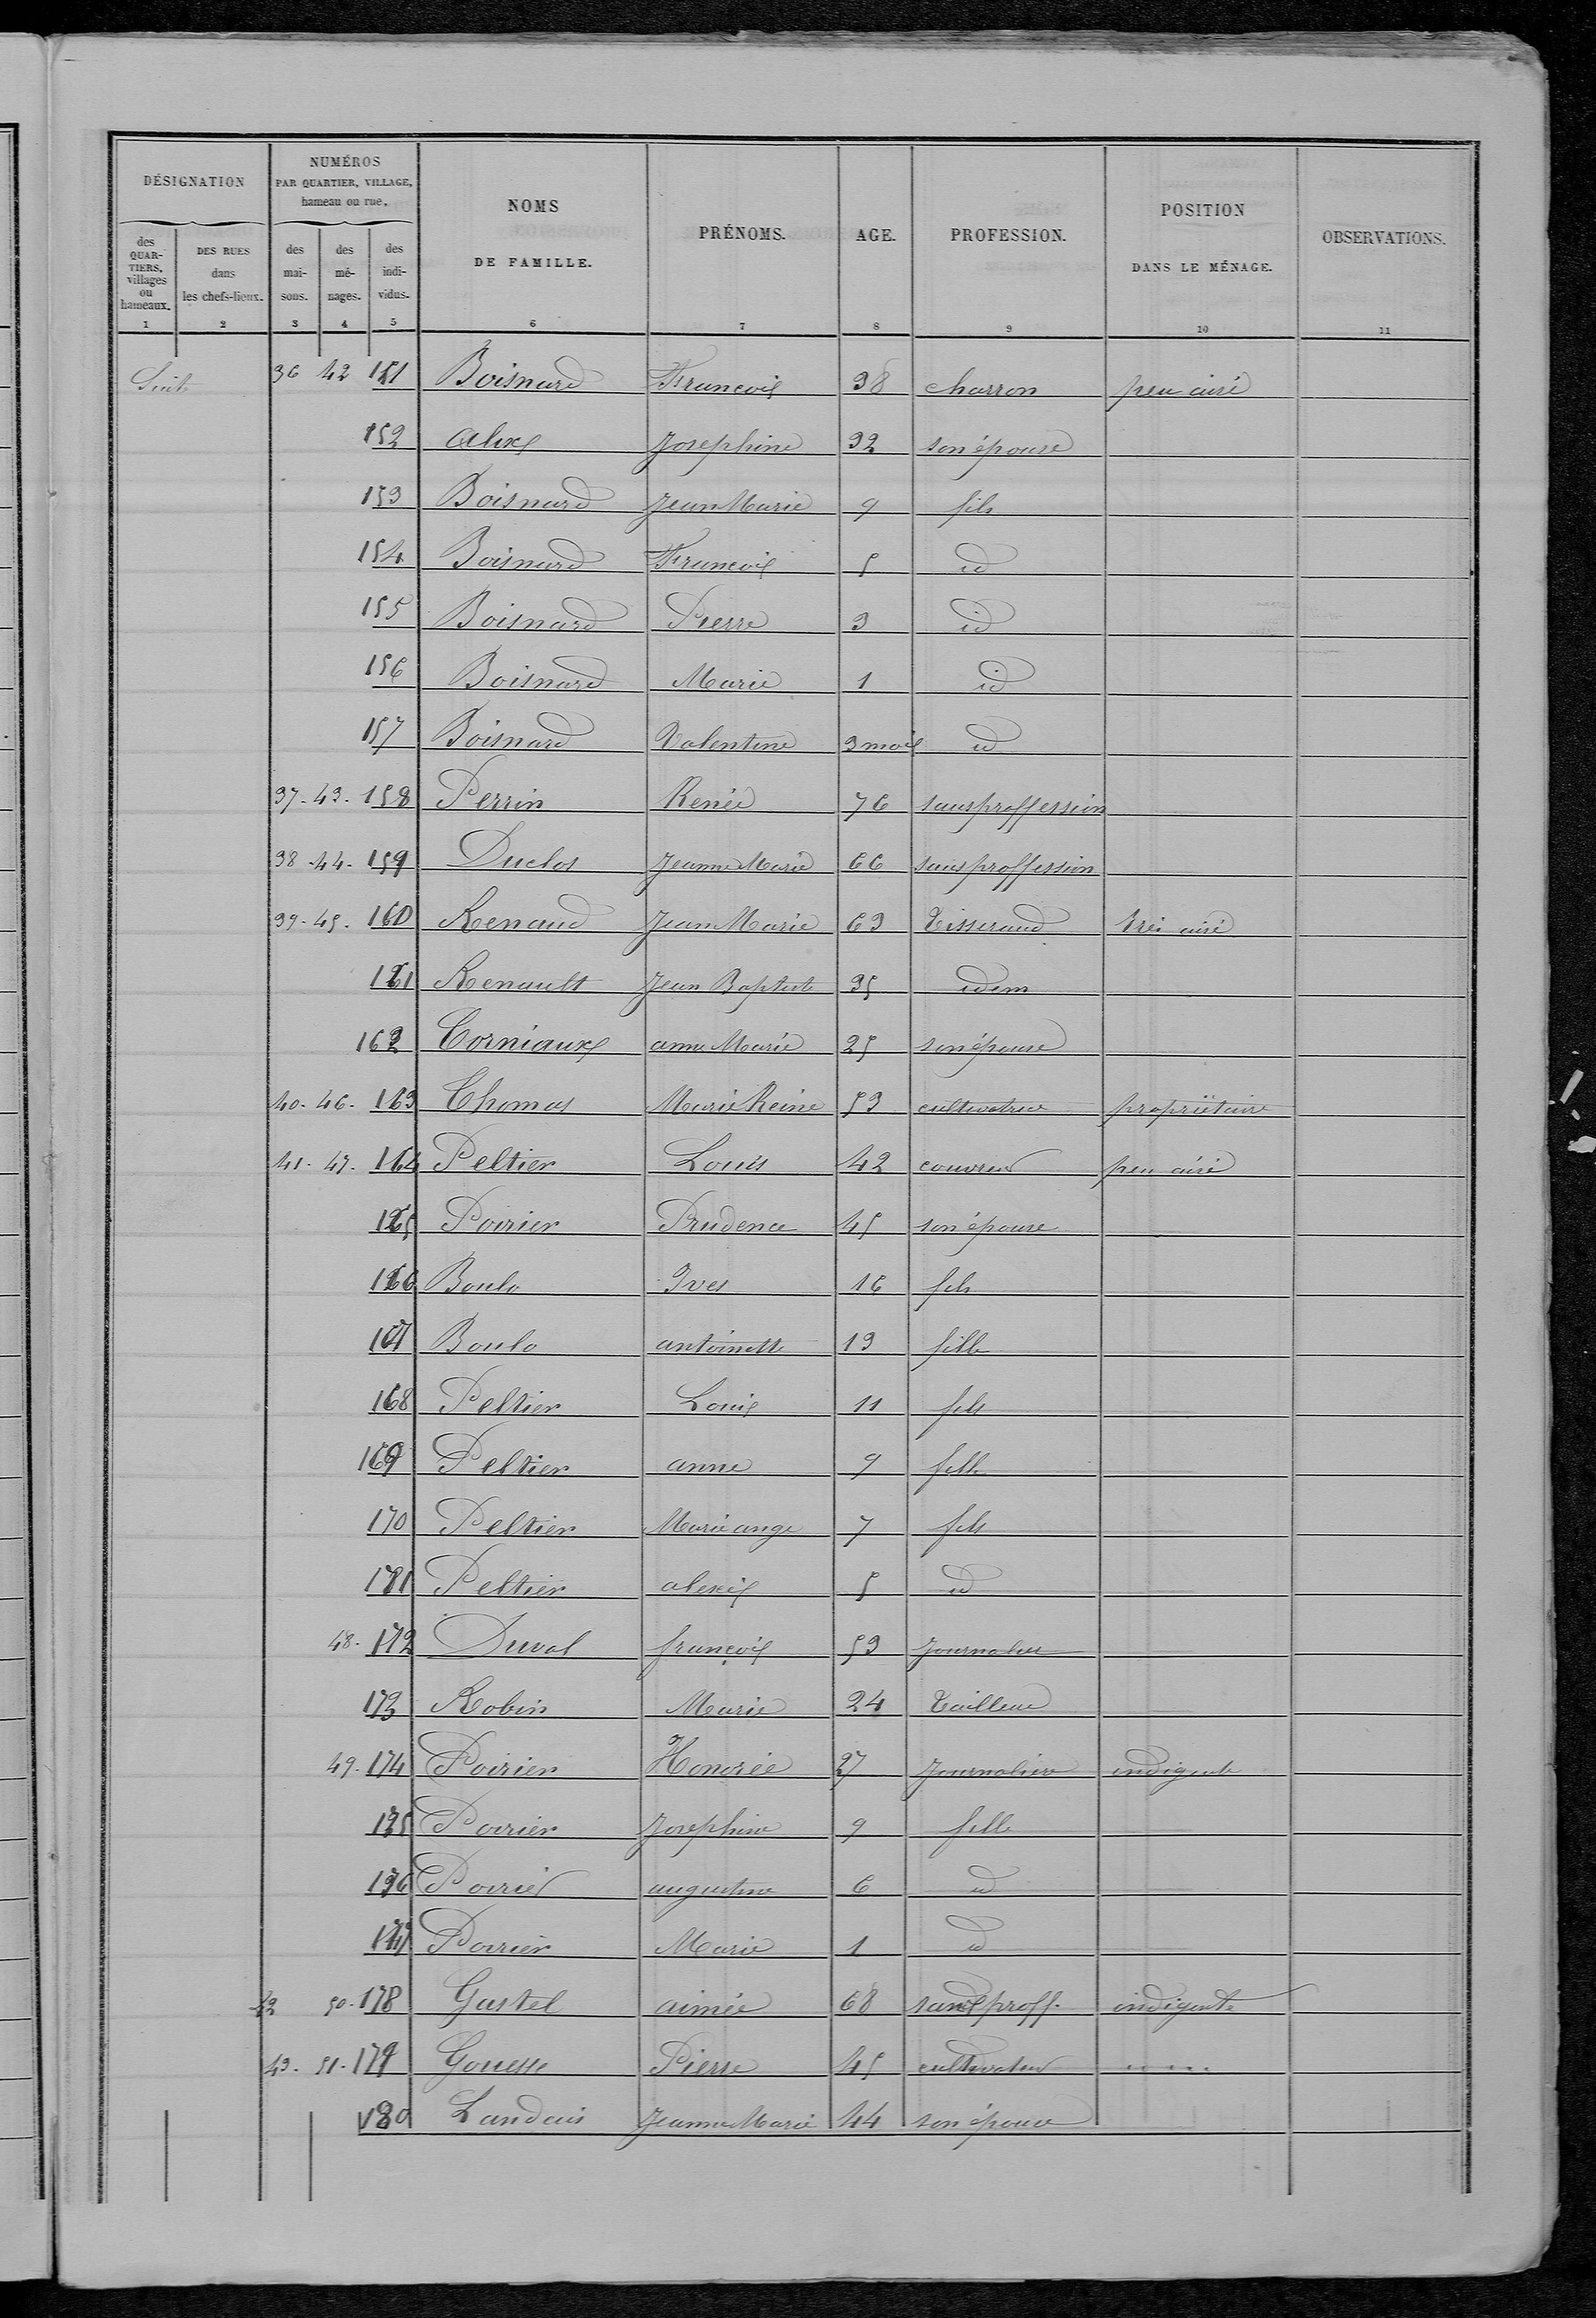 DÉSIGNATION
NUMÉROS PAR QUARTIER, VILLAGE, hameau ou rue.
NOMS DE FAMILLE.
PRÉNOMS.
AGE.
PROFESSION.
POSITION DANS LE MÉNAGE.
OBSERVATIONS.
des QUARTIERS, villages ou hameaux.
DES RUES dans les chefs-lieux.
des maisons.
des ménages.
des individus.
1 2 3 4 5 6 7 8 9 10 11
Suite 36 42 151 Boisnard François 38 charron peu aisé
152 alix Josephine 32 son épouse
153 Boisnard Jean Marie 9 fils
154 Boisnard François 5 id
155 Boisnard Pierre 3 id
156 Boisnard Marie 1 id
157 Boisnard Valentine 3 mois id
37 - 43 - 158 Perrin Renée 76 sans proffession
38 - 44 - 159 Duclos Jeanne Marie 66 sans proffession
39 - 45 - 160 Renaud Jean Marie 63 Tisserand très aisé
161 Renault Jean Baptiste 35 idem
162 Corniaux anne Marie 25 son épouse
40 - 46 - 163 Thomas Marie Reine 53 cultivatrice propriétaire
41 - 47 - 164 Peltier Louis 42 couvreur peu aisé
165 Poirier Prudence 45 son épouse
166 Boulo Yves 16 fils
167 Boulo antoinette 13 fille
168 Peltier Louis 11 fils
169 Peltier anne 9 fille
170 Peltier Marie ange 7 fils
171 Peltier alexis 5 id
48 - 172 Duval françois 53 Journalier
173 Robin Marie 24 Tailleuse
49 - 174 Poirier Honorée 27 Journalière indigente
175 Poirier Josephine 9 fille
176 Poirier augustine 6 id
177 Poirier Marie 1 id
42 50 - 178 Gastel aimée 68 sans proff. indigente
43 - 51 - 179 Gouesse Pierre 45 cultivateur " " " "
180 Landais Jeanne Marie 44 son épouse